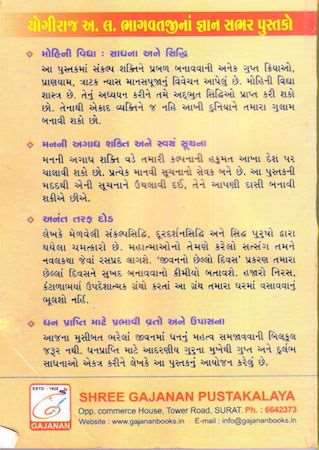 યોગીરાજ અ. લ. ભાગવતજીનાં જ્ઞાન સભર પુસ્તકો
મોહિની વિદ્યા : સાધના અને સિદ્ધિ
આ પુસ્તકમાં સંકલ્પ શક્તિને પ્રબળ બનાવવાની અનેક ગુપ્ત ક્રિયાઓ,
પ્રાણાયામ, ત્રાટક ન્યાસ માનસપૂજાનું વિવેચન આપેલું છે. મોહિની વિદ્યા
શાસ્ત્ર છે. તેનું અધ્યયન કરીને તમે અદ્ભુત સિદ્ધિઓ પ્રાપ્ત કરી શકો
છો. તેનાથી એકાદ વ્યક્તિને જ નહિ આખી દુનિયાને તમારા ગુલામ
બનાવી શકો છો.
મનની અગાધ શક્તિ અને સ્વયં સૂચના
મનની અગાધ શક્તિ વડે તમારી કલ્પનાની હકુમત આખા દેશ પર
ચાલાવી શકો છો. પ્રત્યેક માનવી સૂચનાનો સેવક બને છે. આ પુસ્તકની
મદદથી એની સૂચનાને ઉથલાવી દઈ, તેને આપણી દાસી બનાવી
શકીએ છીએ.
અનંત તરફ દોડ
લેખકે મેળવેલી સંકલ્પસિદ્ધિ, દુરદર્શનસિદ્ધિ અને સિદ્ધ પુરૂષો દ્વારા
થયેલા ચમત્કારો છે. મહાત્માઓનો તેમણે કરેલો સત્સંગ તમને
નવલકથા જેવાં રસપ્રદ લાગશે. 'જીવનનો છેલ્લો દિવસ' પ્રકરણ તમારા
છેલ્લાં દિવસને સુખદ બનાવવાનો કીમીયો બતાવશે. હજારો નિરસ,
કંટાળામયાં ઉપદેશાત્મક ગ્રંથો કરતાં આ ગ્રંથ તમારા ઘરમાં વસાવવાનું
ભૂલશો નહિં.
ધન પ્રાપ્તિ માટે પ્રભાવી વ્રતો અને ઉપાસના
આજના મુસીબત ભરેલાં જીવનમાં ધનનું મહત્વ સમજાવવાની બિલકુલ
જરૂર નથી. ધનપ્રાપ્તિ માટે આદરણીય ગુરૂના મુખેથી ગુપ્ત અને દુર્લભ
સાધનાઓ એકત્ર કરીને લેખકે આ પુસ્તકનું આયોજન કરેલું છે.
GAJANAN
SHREE GAJANAN PUSTAKALAYA
Opp. commerce House, Tower Road, SURAT. Ph. : 6642373
Website : www.gajananbooks.in E-mail : info@gajananbooks.in